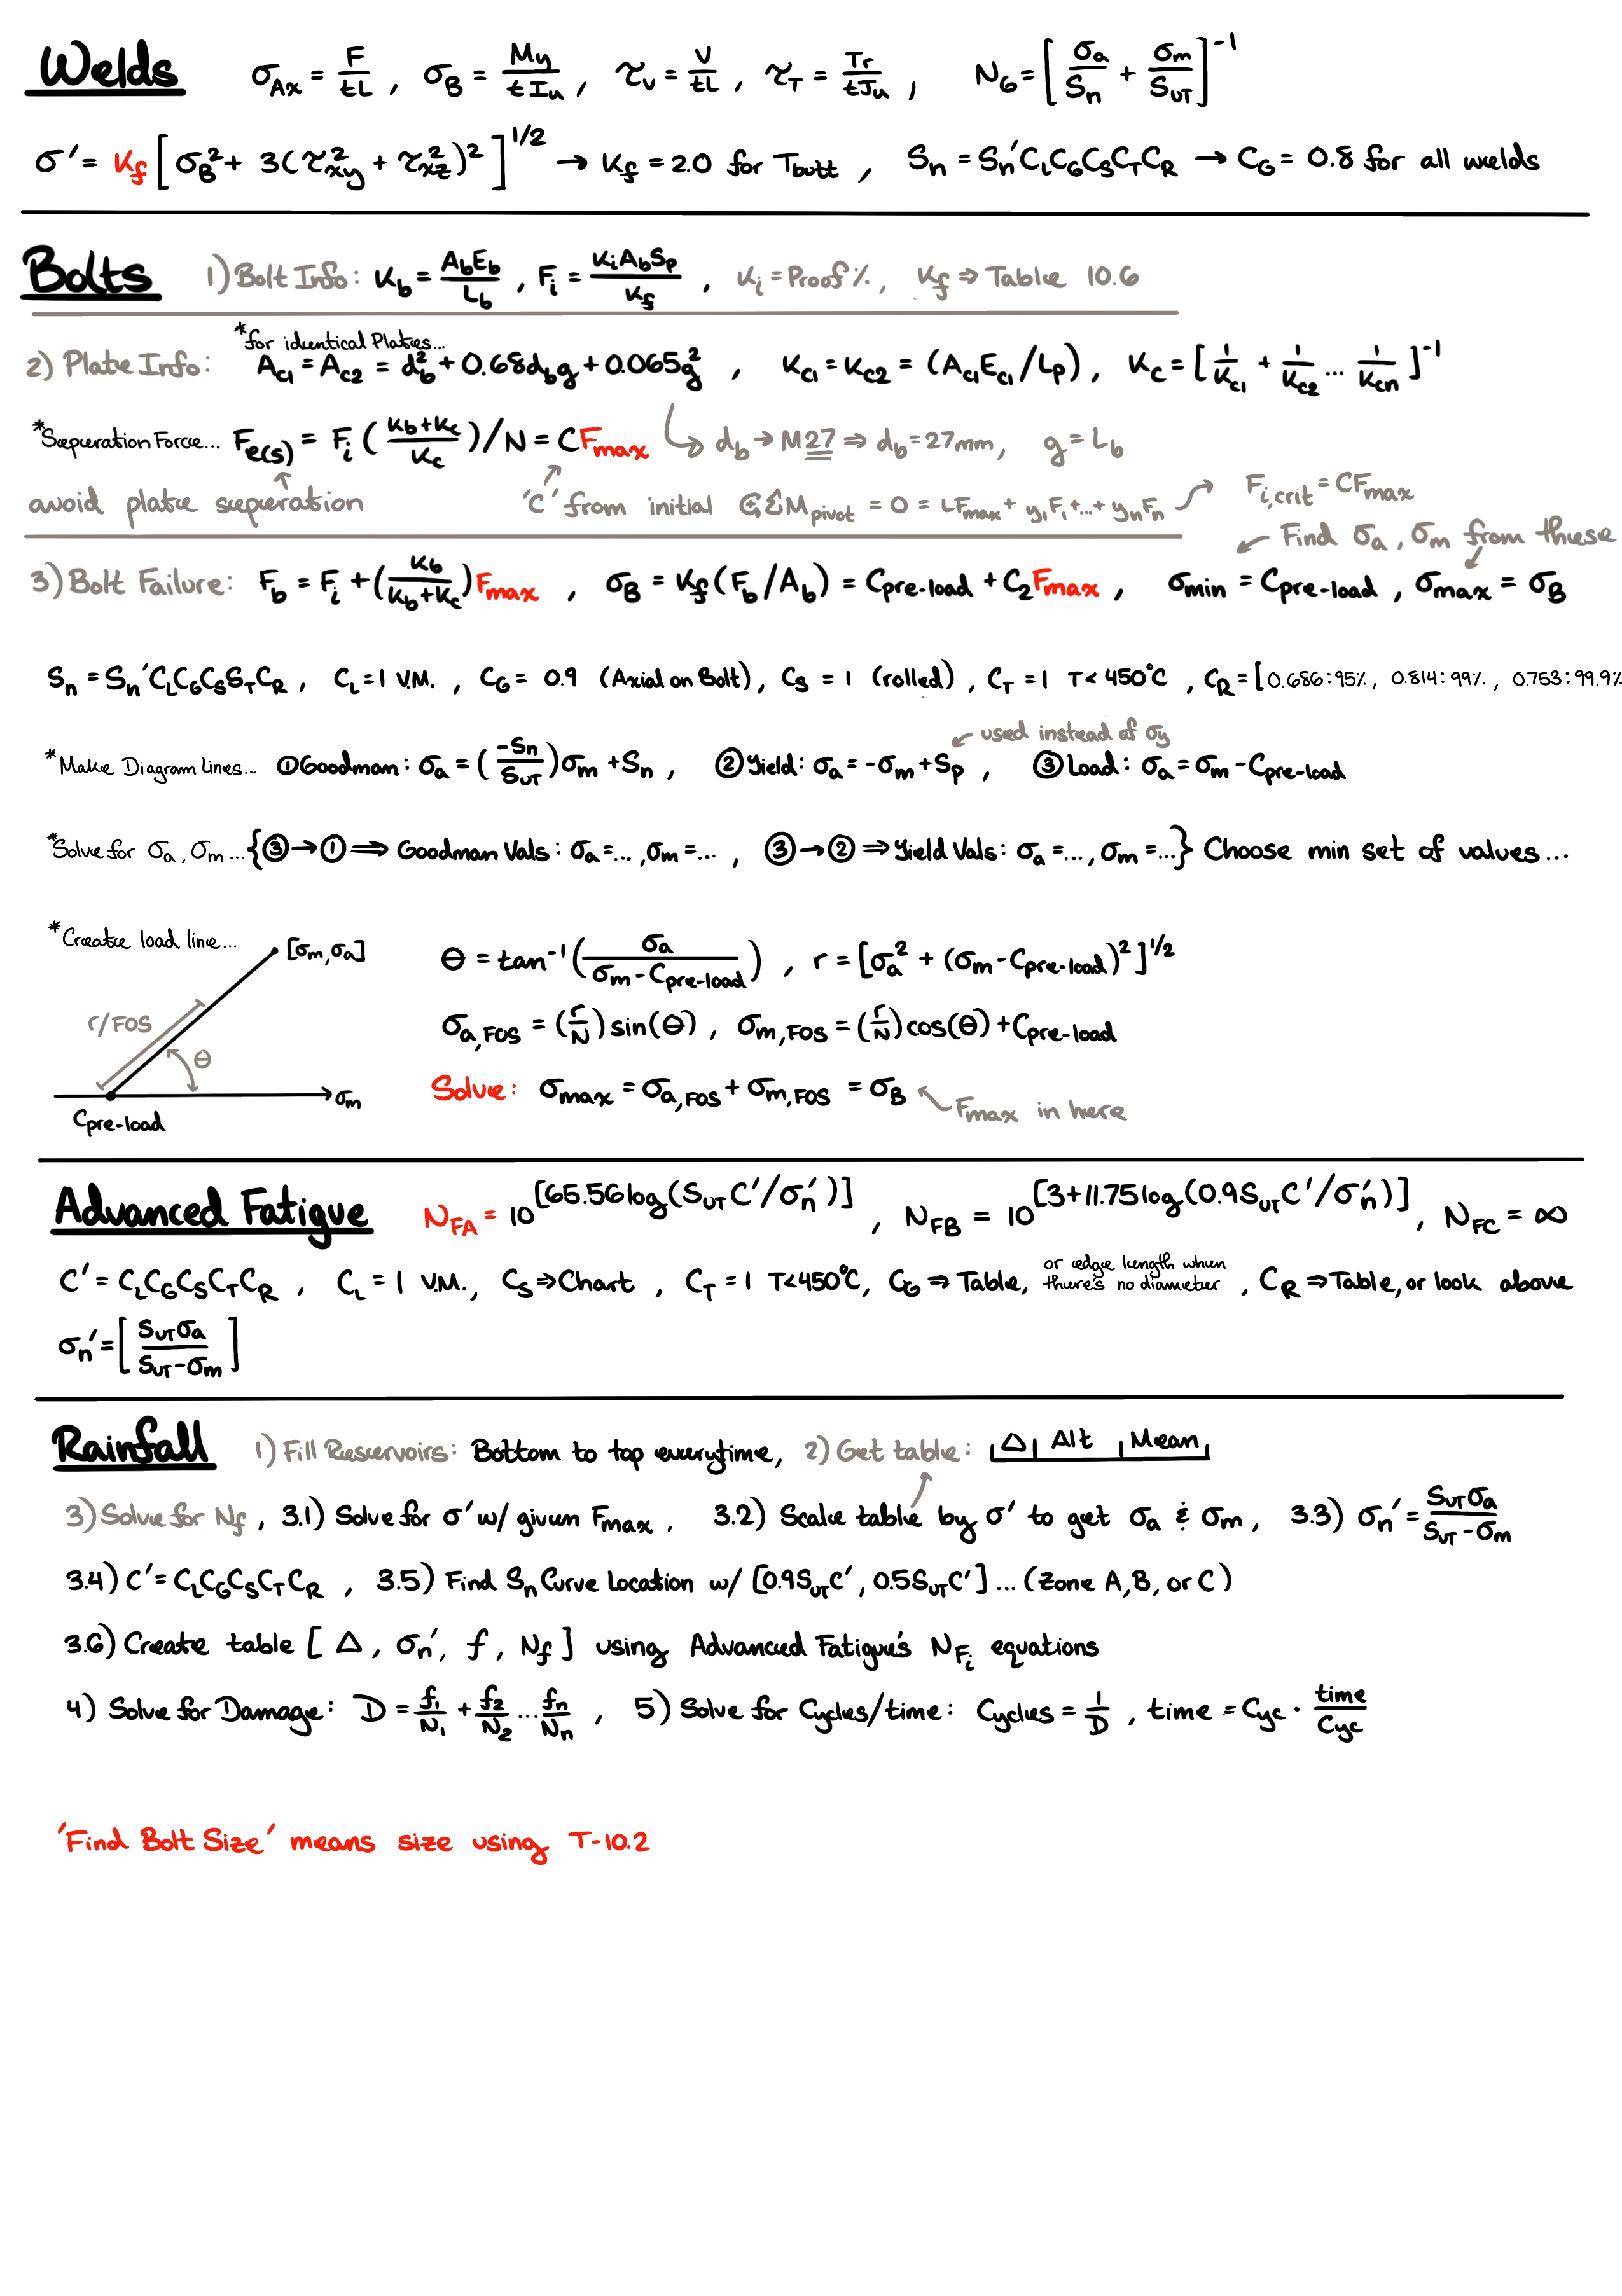 Welds σ_Ax = F/tL , σ_B = My/tI_u , τ_V = V/tL , τ_T = Tr/tJ_u , N_G = [σa/Sn + σm/S_UT]^-1
σ' = K_f [σ_B² + 3(τ_xy² + τ_xz²)²]^1/2 → K_f = 2.0 for T_butt , Sn = Sn'C_L C_G C_S C_T C_R → C_G = 0.8 for all welds
Bolts 1) Bolt Info: K_b = A_b E_b / L_b , F_i = K_i A_b S_p / K_f , K_i = Proof %, K_f ⇒ Table 10.6
*for identical Plates...
2) Plate Info: A_c1 = A_c2 = d_b² + 0.68d_b g + 0.065g² , K_c1 = K_c2 = (A_c1 E_c1 / L_p) , K_c = [1/K_c1 + 1/K_c2 ... 1/K_cn]^-1
*Seperation Force... F_e(s) = F_i ((K_b + K_c)/K_c)/N = C F_max d_b → M27 ⇒ d_b = 27mm, g = L_b
avoid plate seperation 'C' from initial ↺ΣM_pivot = 0 = LF_max + y_1F_1 +...+ y_nF_n → F_i,crit = CF_max
Find σa, σm from these
3) Bolt Failure: F_b = F_i + (K_b/(K_b + K_c))F_max , σ_B = K_f(F_b/A_b) = C_pre-load + C_2F_max , σ_min = C_pre-load , σ_max = σ_B
Sn = Sn'C_L C_G C_S S_T C_R , C_L = 1 V.M. , C_G = 0.9 (Axial on Bolt), C_S = 1 (rolled) , C_T = 1 T<450°C , C_R = [0.686:95%, 0.814:99%, 0.753:99.9%
used instead of σy
*Make Diagram Lines... ①Goodman: σa = (-Sn/S_UT)σm + Sn , ②Yield: σa = -σm + Sp , ③Load: σa = σm - C_pre-load
*Solve for σa, σm ...{③→① ⇒ Goodman Vals: σa = ..., σm = ... , ③→② ⇒ Yield Vals: σa = ..., σm = ...} Choose min set of values...
*Create load line... [σm, σa] θ = tan^-1(σa/(σm - C_pre-load)) , r = [σa² + (σm - C_pre-load)²]^1/2
r/FOS θ σa,FOS = (r/N)sin(θ) , σm,FOS = (r/N)cos(θ) + C_pre-load
σm Solve: σmax = σa,FOS + σm,FOS = σ_B F_max in here
C_pre-load
Advanced Fatigue N_FA = 10^[65.56log(S_UT C'/σn')] , N_FB = 10^[3+11.75log(0.9S_UT C'/σn')] , N_FC = ∞
C' = C_L C_G C_S C_T C_R , C_L = 1 V.M., C_S ⇒ Chart , C_T = 1 T<450°C, C_G ⇒ Table, or edge length when there's no diameter , C_R ⇒ Table, or look above
σn' = [S_UT σa / (S_UT - σm)]
Rainfall 1) Fill Reservoirs: Bottom to top everytime, 2) Get table: |Δ| Alt | Mean|
3) Solve for N_f , 3.1) Solve for σ' w/ given F_max , 3.2) Scale table by σ' to get σa & σm , 3.3) σn' = S_UT σa / (S_UT - σm)
3.4) C' = C_L C_G C_S C_T C_R , 3.5) Find Sn Curve Location w/ [0.9S_UT C', 0.5S_UT C'] ... (Zone A, B, or C)
3.6) Create table [Δ, σn', f, N_f] using Advanced Fatigue's N_Fi equations
4) Solve for Damage: D = f_1/N_1 + f_2/N_2 ... f_n/N_n , 5) Solve for Cycles/time: Cycles = 1/D , time = Cyc · time/Cyc
'Find Bolt Size' means size using T-10.2